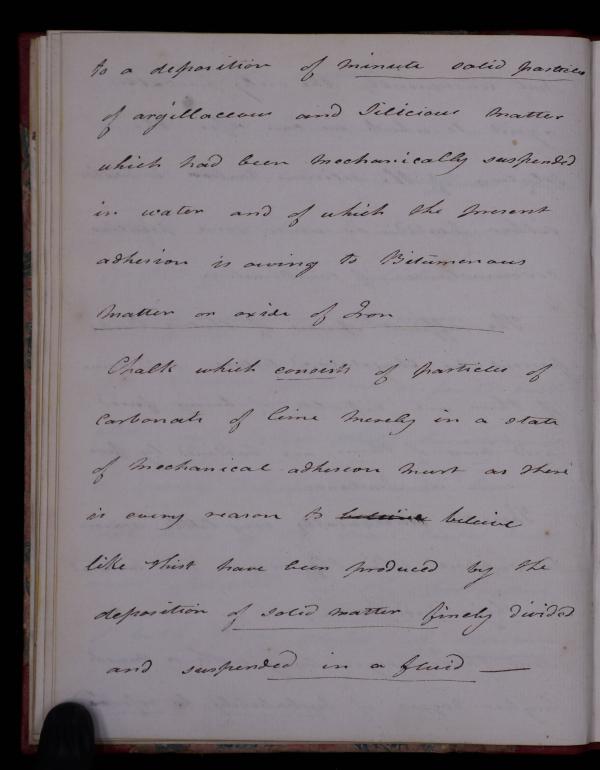 to a deposition of minute solid particles
of argillaceous and Silicious Matter
which had been Mechanically suspended
in water and of which the present
adhesion is owing to Bitumenous
Matter or oxide of Iron
Chalk which consists of particles of
carbonate of lime merely in a state
of Mechanical adhesion must as there
is every reason to beleive beleive
like shist have been produced by the
deposition of solid matter finely divided
and suspended in a fluid —